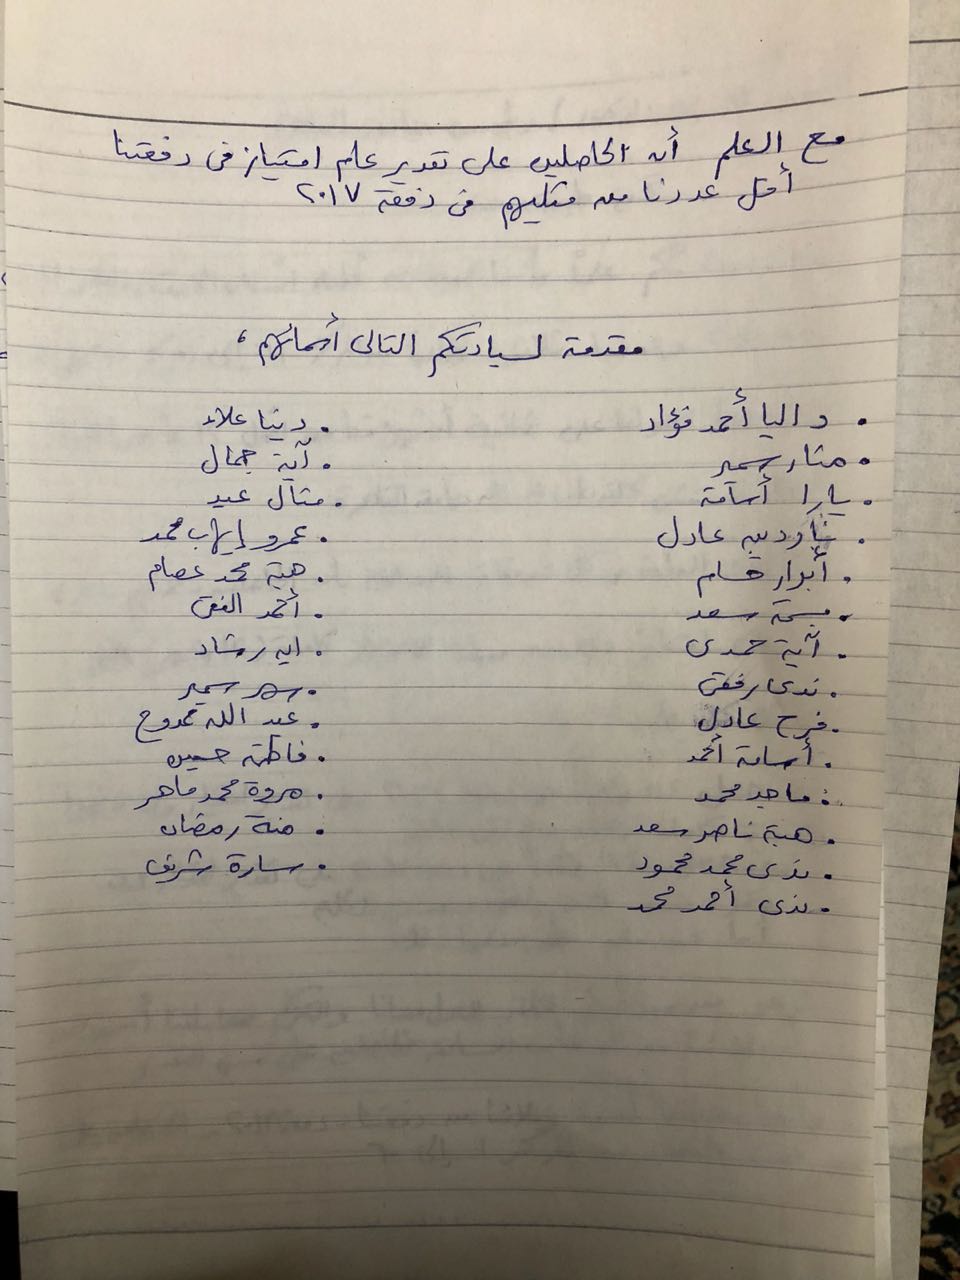 مع العلم أن الحاصلين على تقدير عام امتياز فى دفعتنا
أقل عددنا من مثليهم فى دفعة ٢٠١٧
مقدمة لسيادتكم التالى أسمائهم ،
. داليا أحمد فؤاد
. منار سمير
. يارا أسامة
. عادل
. أبرار حسام
. بسمة سعد
. آية حمدى
. ندى رفقى
. فرح عادل
. أسامة أحمد
. ماجد محمد
. هبة ناصر سعد
. ندى محمد محمود
. ندى أحمد محمد
. دينا علاء
. آية جمال
. منال عيد
. عمرو إيهاب محمد
. هبة محمد عصام
. أحمد الفقى
. ايه رشاد
. سهر سمير
. عبد الله ممدوح
. فاطمة حسين
. مروة محمد ماهر
. منة رمضان
. سارة شريف